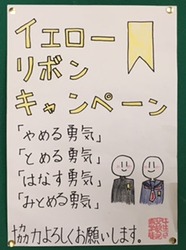 イエロー
リボン
キャンペーン
「やめる勇気」
「とめる勇気」
「はなす勇気」
「みとめる勇気」
協力よろしくお願いします。